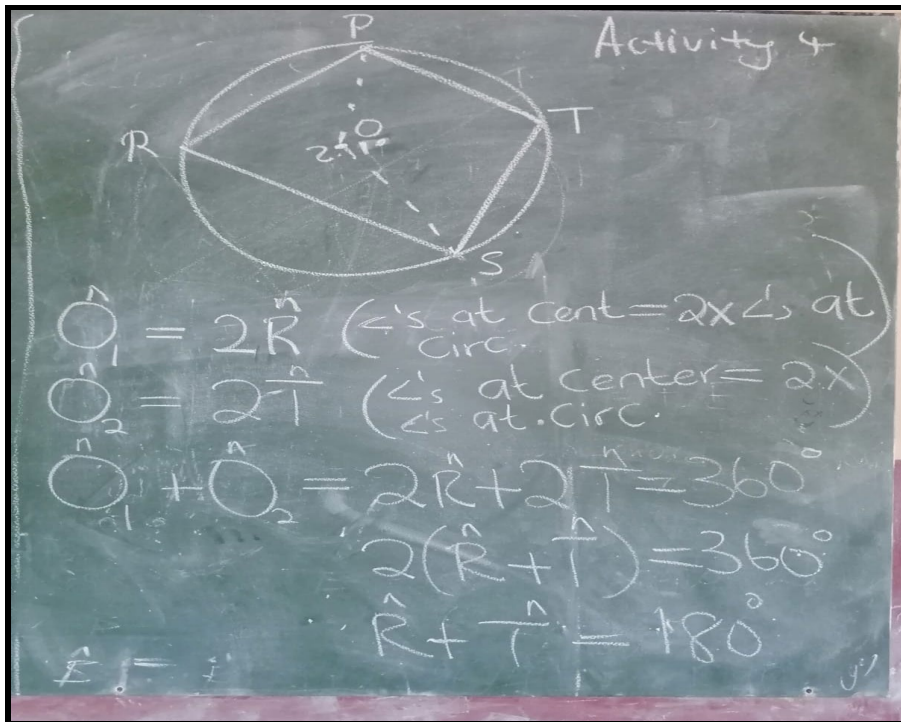 Activity 4
P
R
O
T
2 1
S
Ô₁ = 2R̂ (<'s at cent = 2x <'s at
circ.)
Ô₂ = 2T̂ (<'s at center = 2x
<'s at circ.)
Ô₁ + Ô₂ = 2R̂ + 2T̂ = 360°
2(R̂ + T̂) = 360°
R̂ + T̂ = 180°